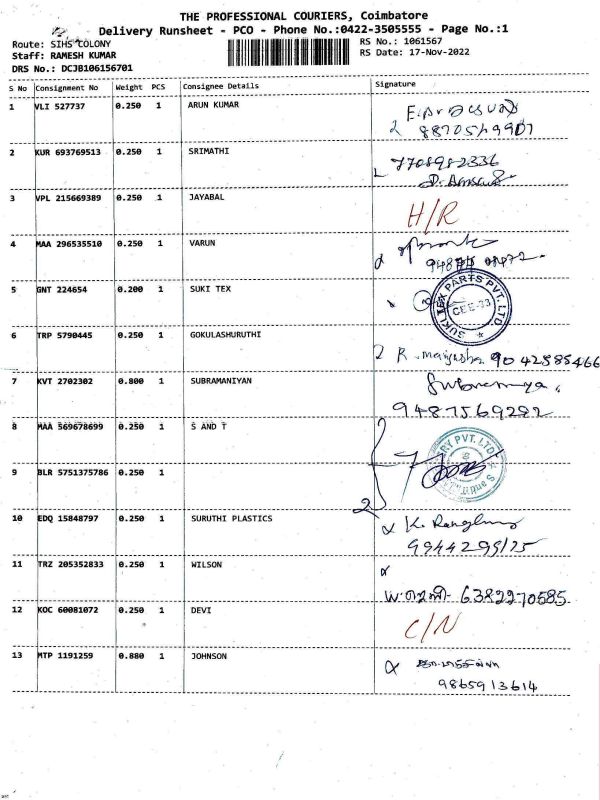 THE PROFESSIONAL COURIERS, Coimbatore
Delivery Runsheet - PCO - Phone No.:0422-3505555 - Page No.:1
Route: SIHS COLONY
RS No.: 1061567
Staff: RAMESH KUMAR
RS Date: 17-Nov-2022
DRS No.: DCJB106156701
S No Consignment No Weight PCS Consignee Details Signature
1 VLI 527737 0.250 1 ARUN KUMAR
2 KUR 693769513 0.250 1 SRIMATHI
7708982336
3 VPL 215669389 0.250 1 JAYABAL H/R
4 MAA 296535510 0.250 1 VARUN
5 GNT 224654 0.200 1 SUKI TEX
SUKI TEX PARTS PVT. LTD.
CEE-33
6 TRP 5790445 0.250 1 GOKULASHURUTHI
R. 9042885466
7 KVT 2702302 0.800 1 SUBRAMANIYAN
9487569282
8 MAA 569678699 0.250 1 S AND T
PVT. LTD
9 BLR 5751375786 0.250 1
10 EDQ 15848797 0.250 1 SURUTHI PLASTICS
K.
9944299125
11 TRZ 205352833 0.250 1 WILSON
6382270585
12 KOC 60081072 0.250 1 DEVI C/N
13 MTP 1191259 0.880 1 JOHNSON
9865913614